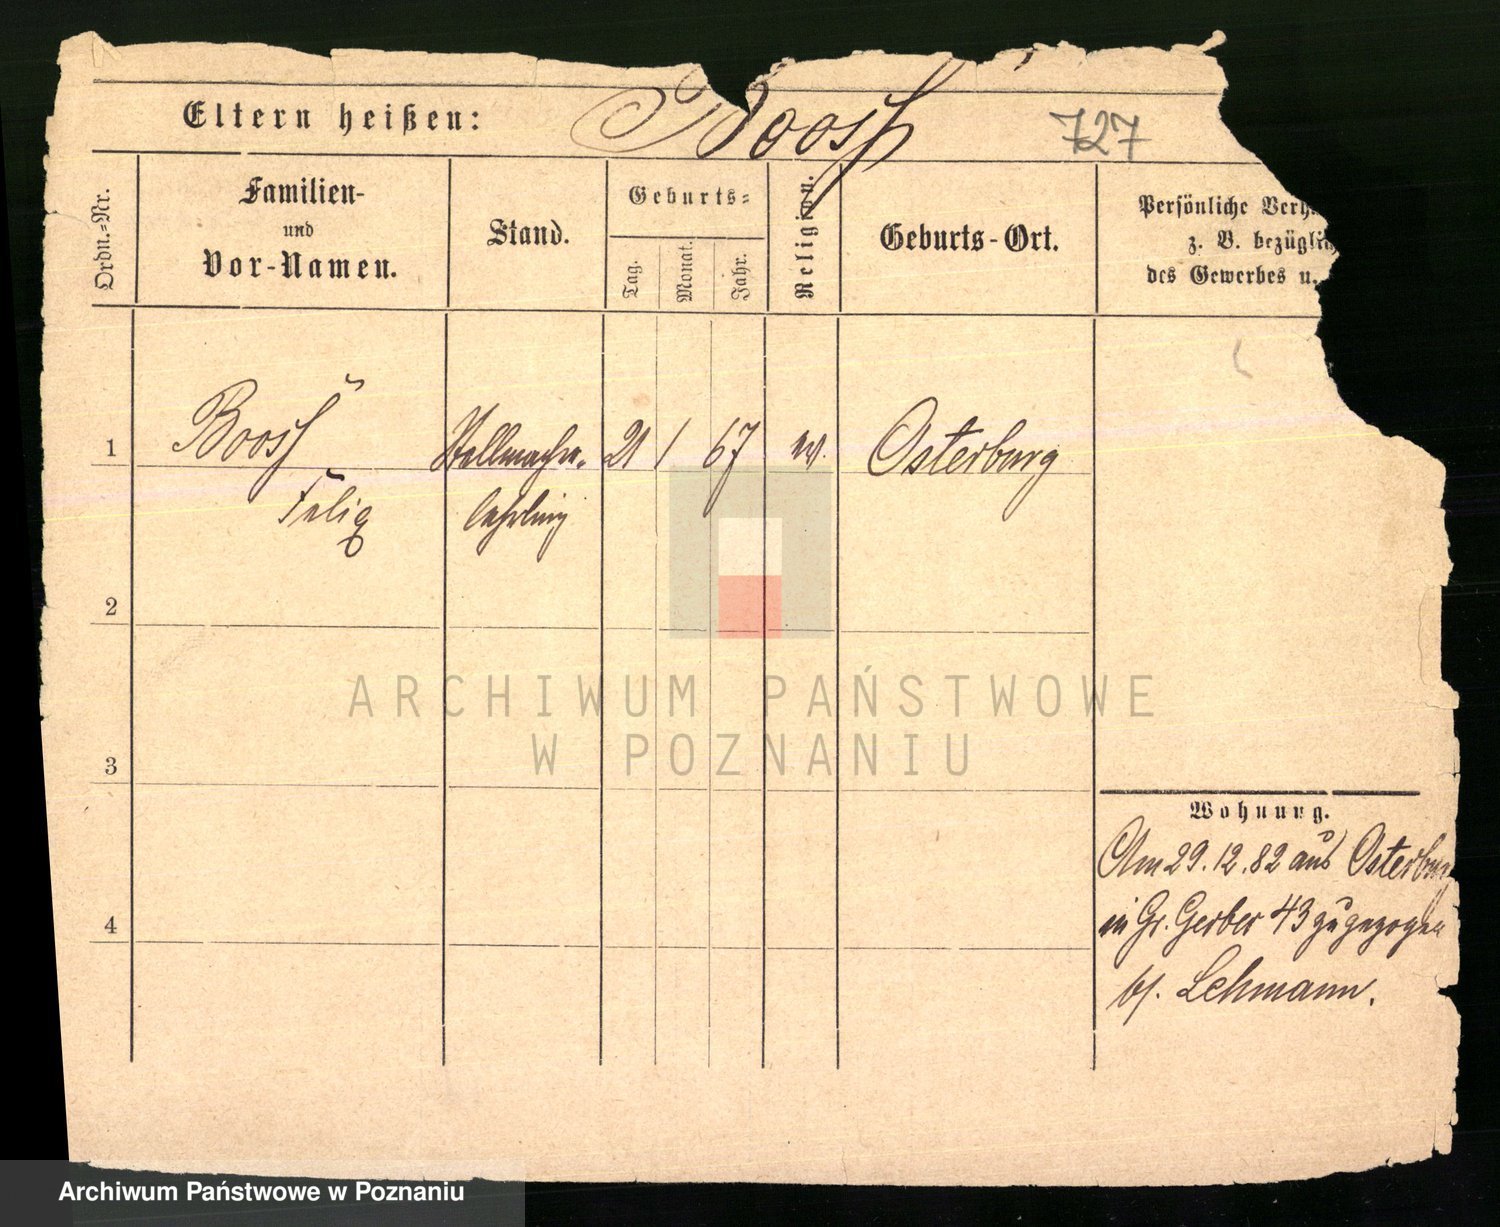 Eltern heißen: Boosf 727
Ordn.-Nr.
Familien-
und
Vor-Namen.
Stand.
Geburts-
Tag.
Monat.
Jahr.
Religion.
Geburts-Ort.
Persönliche
z. B.
des Gewerbes u.
1 Boosf Stellmacher- 21 1 67 ev. Osterburg
Felix lehrling
2
3
4
Wohnung.
Am 29.12.82 aus Osterburg
in Gr. Gerber 43 zugezogen
bf. Lehmann.
ARCHIWUM PAŃSTWOWE
W POZNANIU
Archiwum Państwowe w Poznaniu